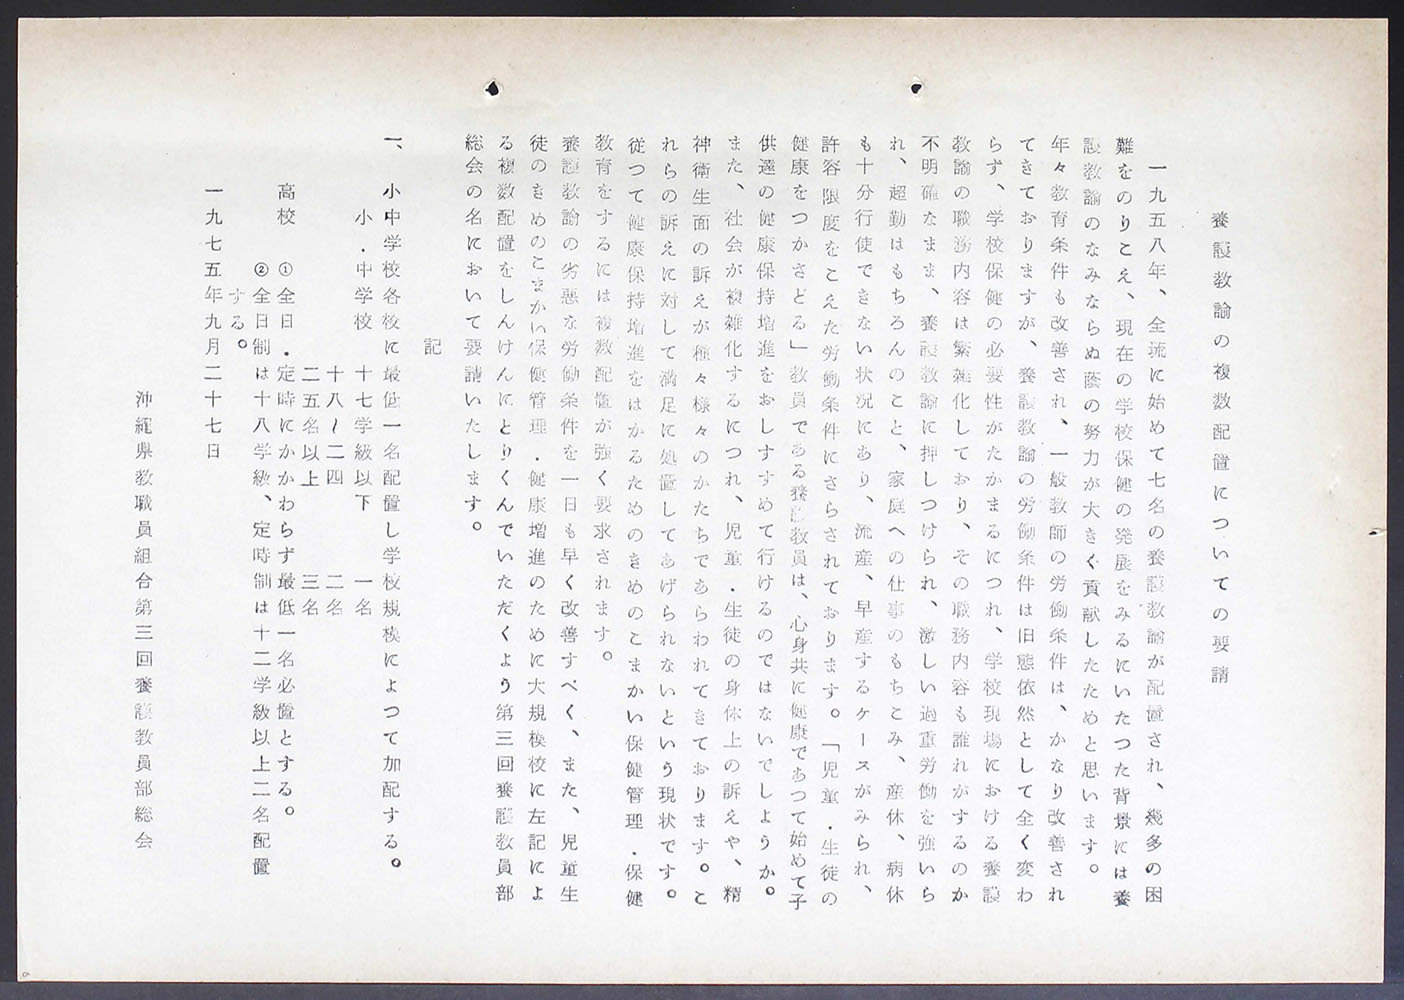 養護教諭の複数配置についての要請
一九五八年、全流に始めて七名の養護教諭が配置され、幾多の困
難をのりこえ、現在の学校保健の発展をみるにいたつた背景には養
護教諭のなみならぬ蔭の努力が大きく貢献したためと思います。
年々教育条件も改善され、一般教師の労働条件は、かなり改善され
てきておりますが、養護教諭の労働条件は旧態依然として全く変わ
らず、学校保健の必要性がたかまるにつれ、学校現場における養護
教諭の職務内容は繁雑化しており、その職務内容も誰れがするのか
不明確なまま、養護教諭に押しつけられ、激しい過重労働を強いら
れ、超勤はもちろんのこと、家庭への仕事のもちこみ、産休、病休
も十分行使できない状況にあり、流産、早産するケースがみられ、
許容限度をこえた労働条件にさらされております。「児童・生徒の
健康をつかさどる」教員である養護教員は、心身共に健康であつて始めて子
供達の健康保持増進をおしすすめて行けるのではないでしようか。
また、社会が複雑化するにつれ、児童・生徒の身体上の訴えや、精
神衛生面の訴えが種々様々のかたちであらわれてきております。こ
れらの訴えに対して満足に処置してあげられないという現状です。
従つて健康保持増進をはかるためのきめのこまかい保健管理・保健
教育をするには複数配置が強く要求されます。
養護教諭の劣悪な労働条件を一日も早く改善すべく、また、児童生
徒のきめのこまかい保健管理・健康増進のために大規模校に左記によ
る複数配置をしんけんにとりくんでいただくよう第三回養護教員部
総会の名において要請いたします。
記
一、小中学校各校に最低一名配置し学校規模によつて加配する。
小・中学校 十七学級以下 一名
十八〜二四 二名
二五名以上 三名
高校 ①全日・定時にかかわらず最低一名必置とする。
②全日制は十八学級、定時制は十二学級以上二名配置
する。
一九七五年九月二十七日
沖縄県教職員組合第三回養護教員部総会